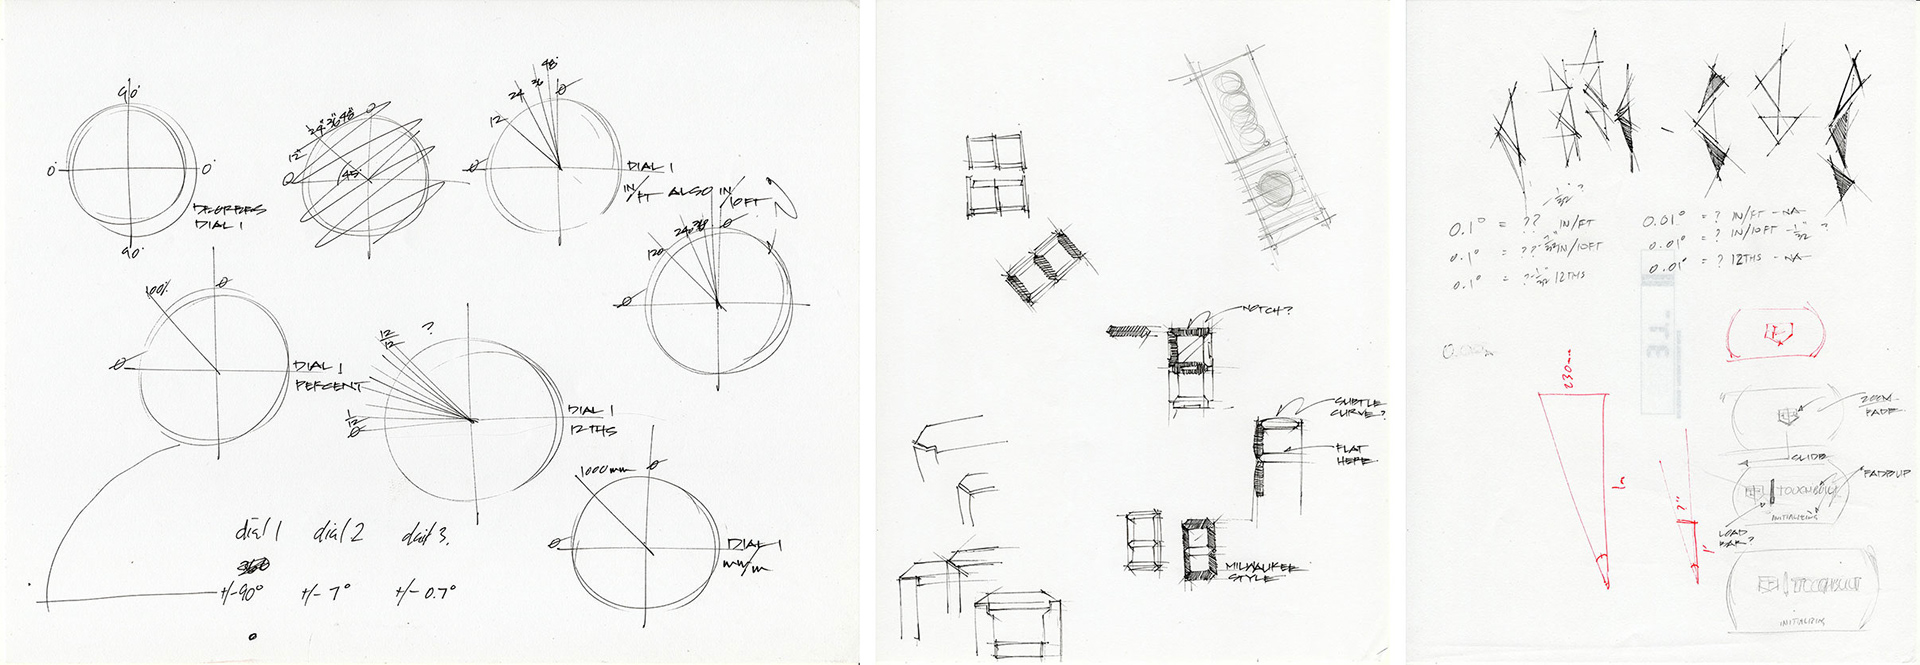 90°
0°
0°
90°
DEGREES
DIAL 1
24" 36" 48"
12"
0
45°
0
48"
36
24
12
0
0
DIAL 1
IN/FT ALSO IN/10FT
0
24" 36"
120
0
100%
0
0
DIAL 1
PERCENT
12/12
?
1/12
0
DIAL 1
12THS
1000mm
0
0
DIAL 1
mm/m
dial 1 dial 2 dial 3.
360
+/-90° +/-7° +/-0.7°
NOTCH?
SUBTLE
CURVE?
FLAT
HERE
MILWAUKEE
STYLE
1/32"?
0.1° = ?? IN/FT
0.1° = ?? 1/32" IN/10FT
0.1° = ? 1/32" 12THS
0.01° = ? IN/FT -NA
0.01° = ? IN/10FT -1/32" ?
0.01° = ? 12THS -NA
230mm
1m
?"
1"
ZOOM
FADE
SLIDE
FADEUP
TOUGHBUILT
INITIALIZING
LOAD
BAR?
TOUGHBUILT
INITIALIZING